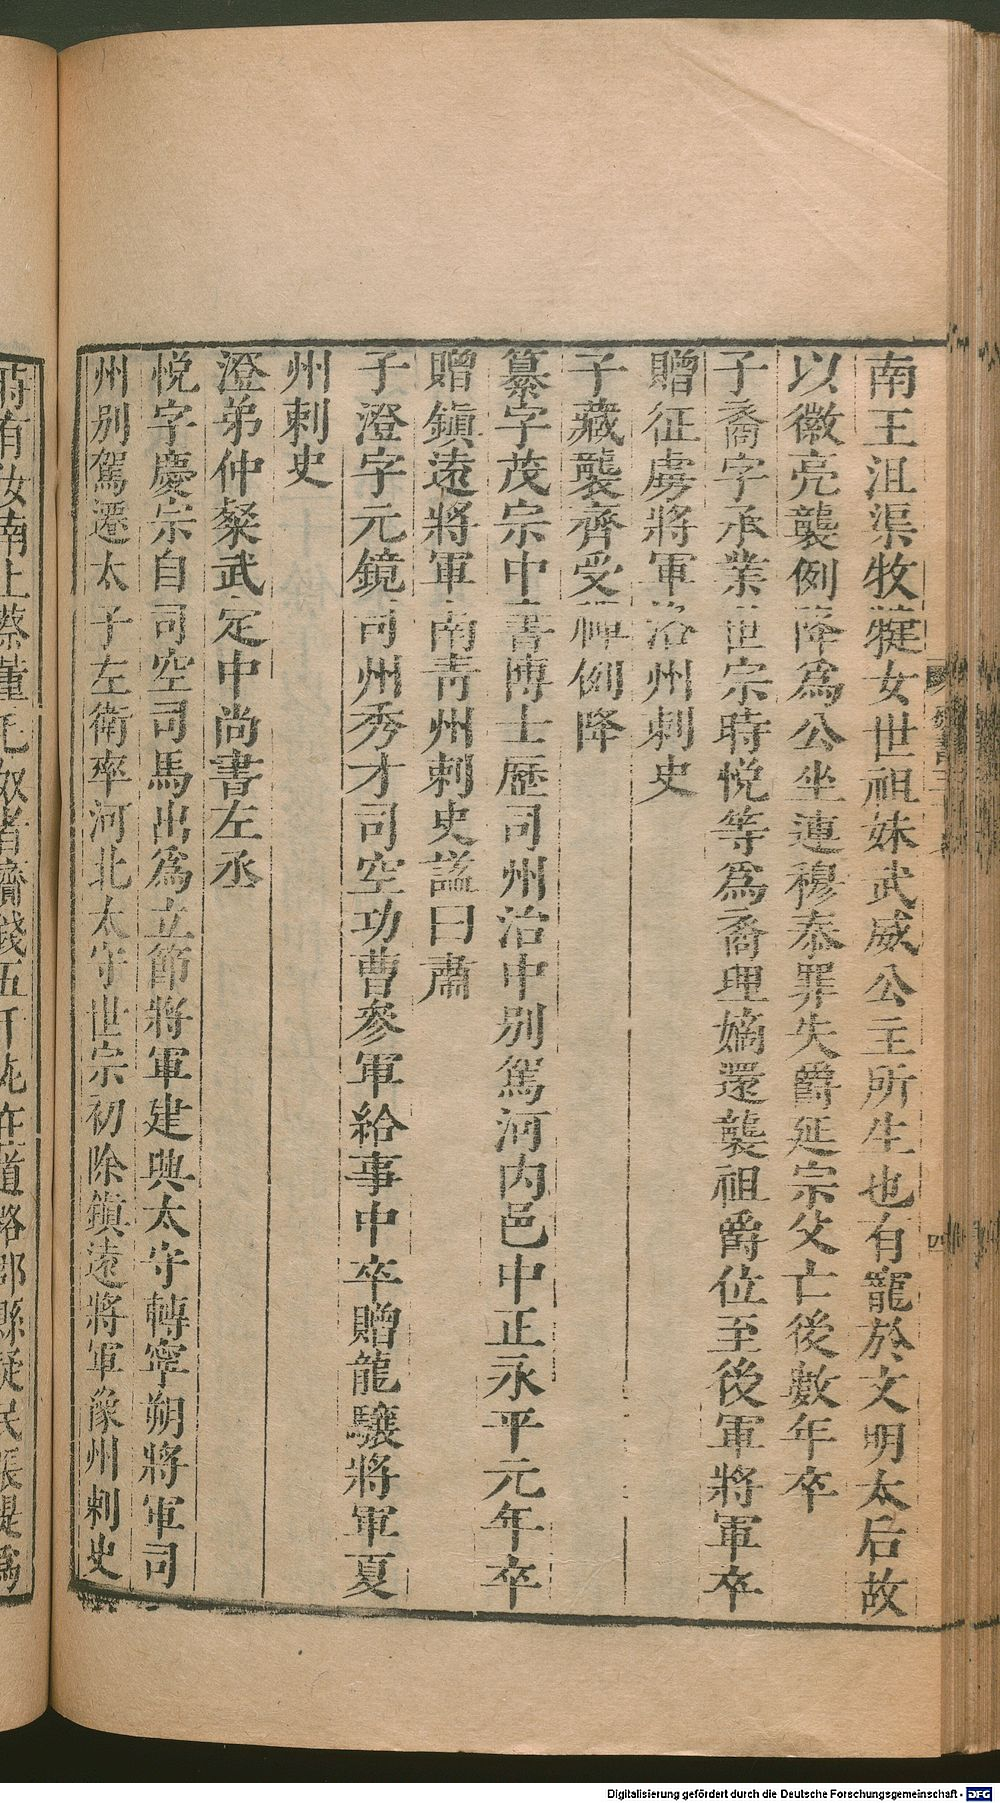 南王沮渠牧犍女世祖妹武威公主所生也有寵於文明太后故
以徽亮襲例降爲公坐連穆泰罪失爵延宗父亡後數年卒
子裔字承業世宗時悅等爲裔理嫡還襲祖爵位至後軍將軍卒
贈征虜將軍洛州刺史
子藏襲齊受禪例降
纂字茂宗中書博士歷司州治中別駕河内邑中正永平元年卒
贈鎭遠將軍南青州刺史諡曰肅
子澄字元鏡司州秀才司空功曹參軍給事中卒贈龍驤將軍夏
州刺史
澄弟仲粲武定中尚書左丞
悅字慶宗自司空司馬出爲立節將軍建興太守轉寧朔將軍司
州別駕遷太子左衛率河北太守世宗初除鎭遠將軍豫州刺史
時有汝南上蔡董毛奴者齎錢五千死在道路郡縣疑民張堤爲
四
Digitalisierung gefördert durch die Deutsche Forschungsgemeinschaft - DFG